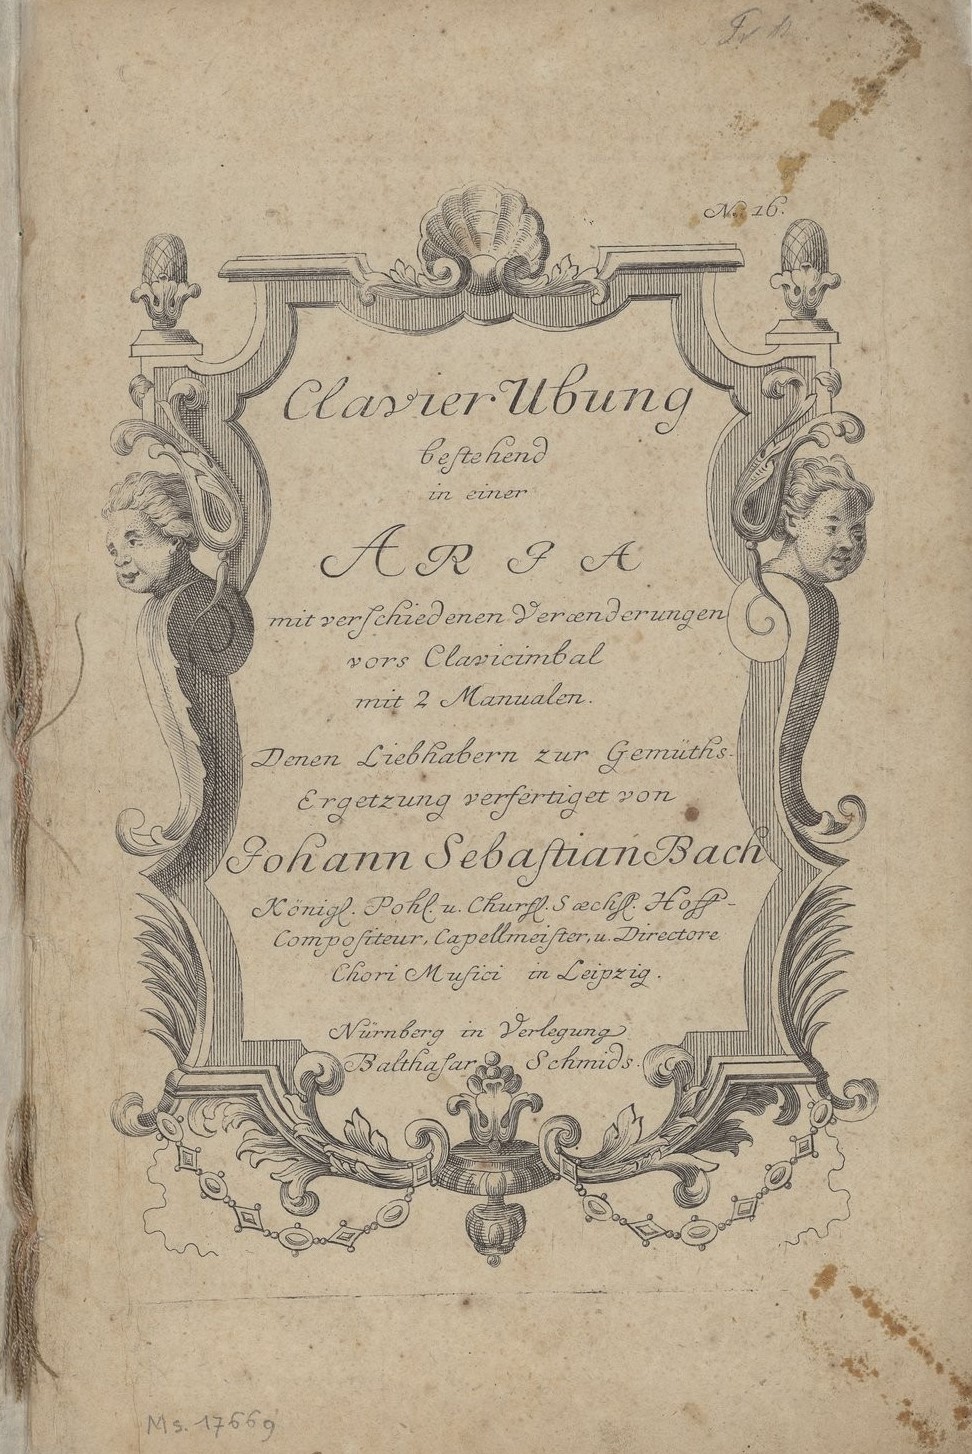 N. 16.
Clavier Ubung
beſtehend
in einer
ARIA
mit verſchiedenen Verænderungen
vors Clavicimbal
mit 2 Manualen.
Denen Liebhabern zur Gemüths-
Ergetzung verfertiget von
Johann Sebaſtian Bach
Königl. Pohl. u. Churfl. Sæchſl. Hoff-
Compoſiteur, Capellmeiſter, u. Directore
Chori Muſici in Leipzig.
Nürnberg in Verlegung
Balthaſar Schmids.
Ms. 17669